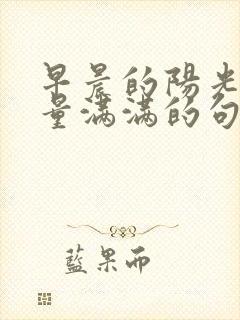 早晨的陽光
量滿滿的句
藍果而